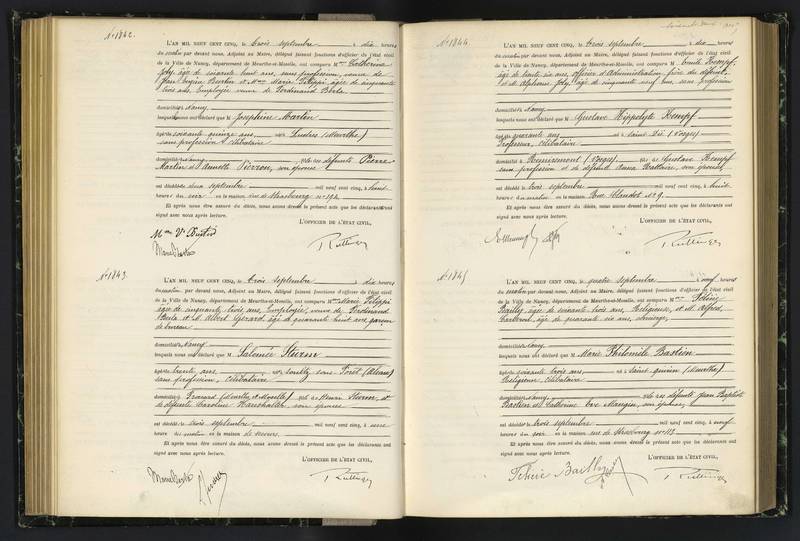 N° 1842.
L'AN MIL NEUF CENT CINQ, le trois septembre, à dix heures
du matin par devant nous, Adjoint au Maire, délégué faisant fonctions d'officier de l'état civil
de la Ville de Nancy, département de Meurthe-et-Moselle, ont comparu Mme Catherine
Joly, âgée de soixante huit ans, sans profession, veuve de
et Mme Marie Filippi, âgée de cinquante
trois ans, Employée, veuve de Ferdinand Berla
domiciliés à Nancy
lesquels nous ont déclaré que M Joséphine Martin
âgée de soixante quinze ans née à Ludres (Meurthe)
sans profession, célibataire
domiciliée à Nancy, fille des défunts Pierre
Martin et Annette Pierron, son épouse
est décédée deux septembre mil neuf cent cinq, à huit
heures du soir en la maison rue de Strasbourg n° 194
Et après nous être assuré du décès, nous avons dressé le présent acte que les déclarants ont
signé avec nous après lecture.
L'OFFICIER DE L'ÉTAT CIVIL,
N° 1843.
L'AN MIL NEUF CENT CINQ, le trois septembre, à dix heures
du matin par devant nous, Adjoint au Maire, délégué faisant fonctions d'officier de l'état civil
de la Ville de Nancy, département de Meurthe-et-Moselle, ont comparu Mme Marie Filippi
âgée de cinquante trois ans, Employée, veuve de Ferdinand
Berla et M. Albert Gérard, âgé de quarante huit ans, garçon
de bureau
domiciliés à Nancy
lesquels nous ont déclaré que M Salomée Sturm
âgée de trente ans née à Soultz sous Forêt (Alsace)
sans profession, célibataire
domiciliée à (Meurthe et Moselle) fille de Sturm, et
de défunte Caroline son épouse
est décédée trois septembre mil neuf cent cinq, à une
heure du matin en la maison de secours
Et après nous être assuré du décès, nous avons dressé le présent acte que les déclarants ont
signé avec nous après lecture.
L'OFFICIER DE L'ÉTAT CIVIL,
N° 1844.
L'AN MIL NEUF CENT CINQ, le trois septembre, à dix heures
du matin par devant nous, Adjoint au Maire, délégué faisant fonctions d'officier de l'état civil
de la Ville de Nancy, département de Meurthe-et-Moselle, ont comparu M. Emile Kempf,
âgé de trente six ans, officier d'Administration, frère du défunt,
et M. Alphonse Joly, âgé de cinquante neuf ans, sans profession
domiciliés à Nancy
lesquels nous ont déclaré que M Gustave Hippolyte Kempf
âgé de quarante ans né à Saint Dié (Vosges)
Professeur, célibataire
domicilié à Remiremont (Vosges) fils de Gustave Kempf
sans profession et de défunte Anna son épouse
est décédé trois septembre mil neuf cent cinq, à huit
heures du matin en la maison Rue Blandot n° 9.
Et après nous être assuré du décès, nous avons dressé le présent acte que les déclarants ont
signé avec nous après lecture.
L'OFFICIER DE L'ÉTAT CIVIL,
N° 1845
L'AN MIL NEUF CENT CINQ, le quatre septembre, à neuf heures
du matin par devant nous, Adjoint au Maire, délégué faisant fonctions d'officier de l'état civil
de la Ville de Nancy, département de Meurthe-et-Moselle, ont comparu Mme
âgée de soixante trois ans, Religieuse, et M. Alfred
âgé de quarante six ans, concierge,
domiciliés à Nancy
lesquels nous ont déclaré que M Marie Philomèle Bastien
âgée de soixante trois ans née à Saint Quirin (Meurthe)
Religieuse, célibataire
domiciliée à Nancy, fille des défunts Jean Baptiste
Bastien et Catherine Eve Mangin, son épouse,
est décédée trois septembre mil neuf cent cinq, à neuf
heures du soir en la maison rue de Strasbourg n° 113
Et après nous être assuré du décès, nous avons dressé le présent acte que les déclarants ont
signé avec nous après lecture.
L'OFFICIER DE L'ÉTAT CIVIL,